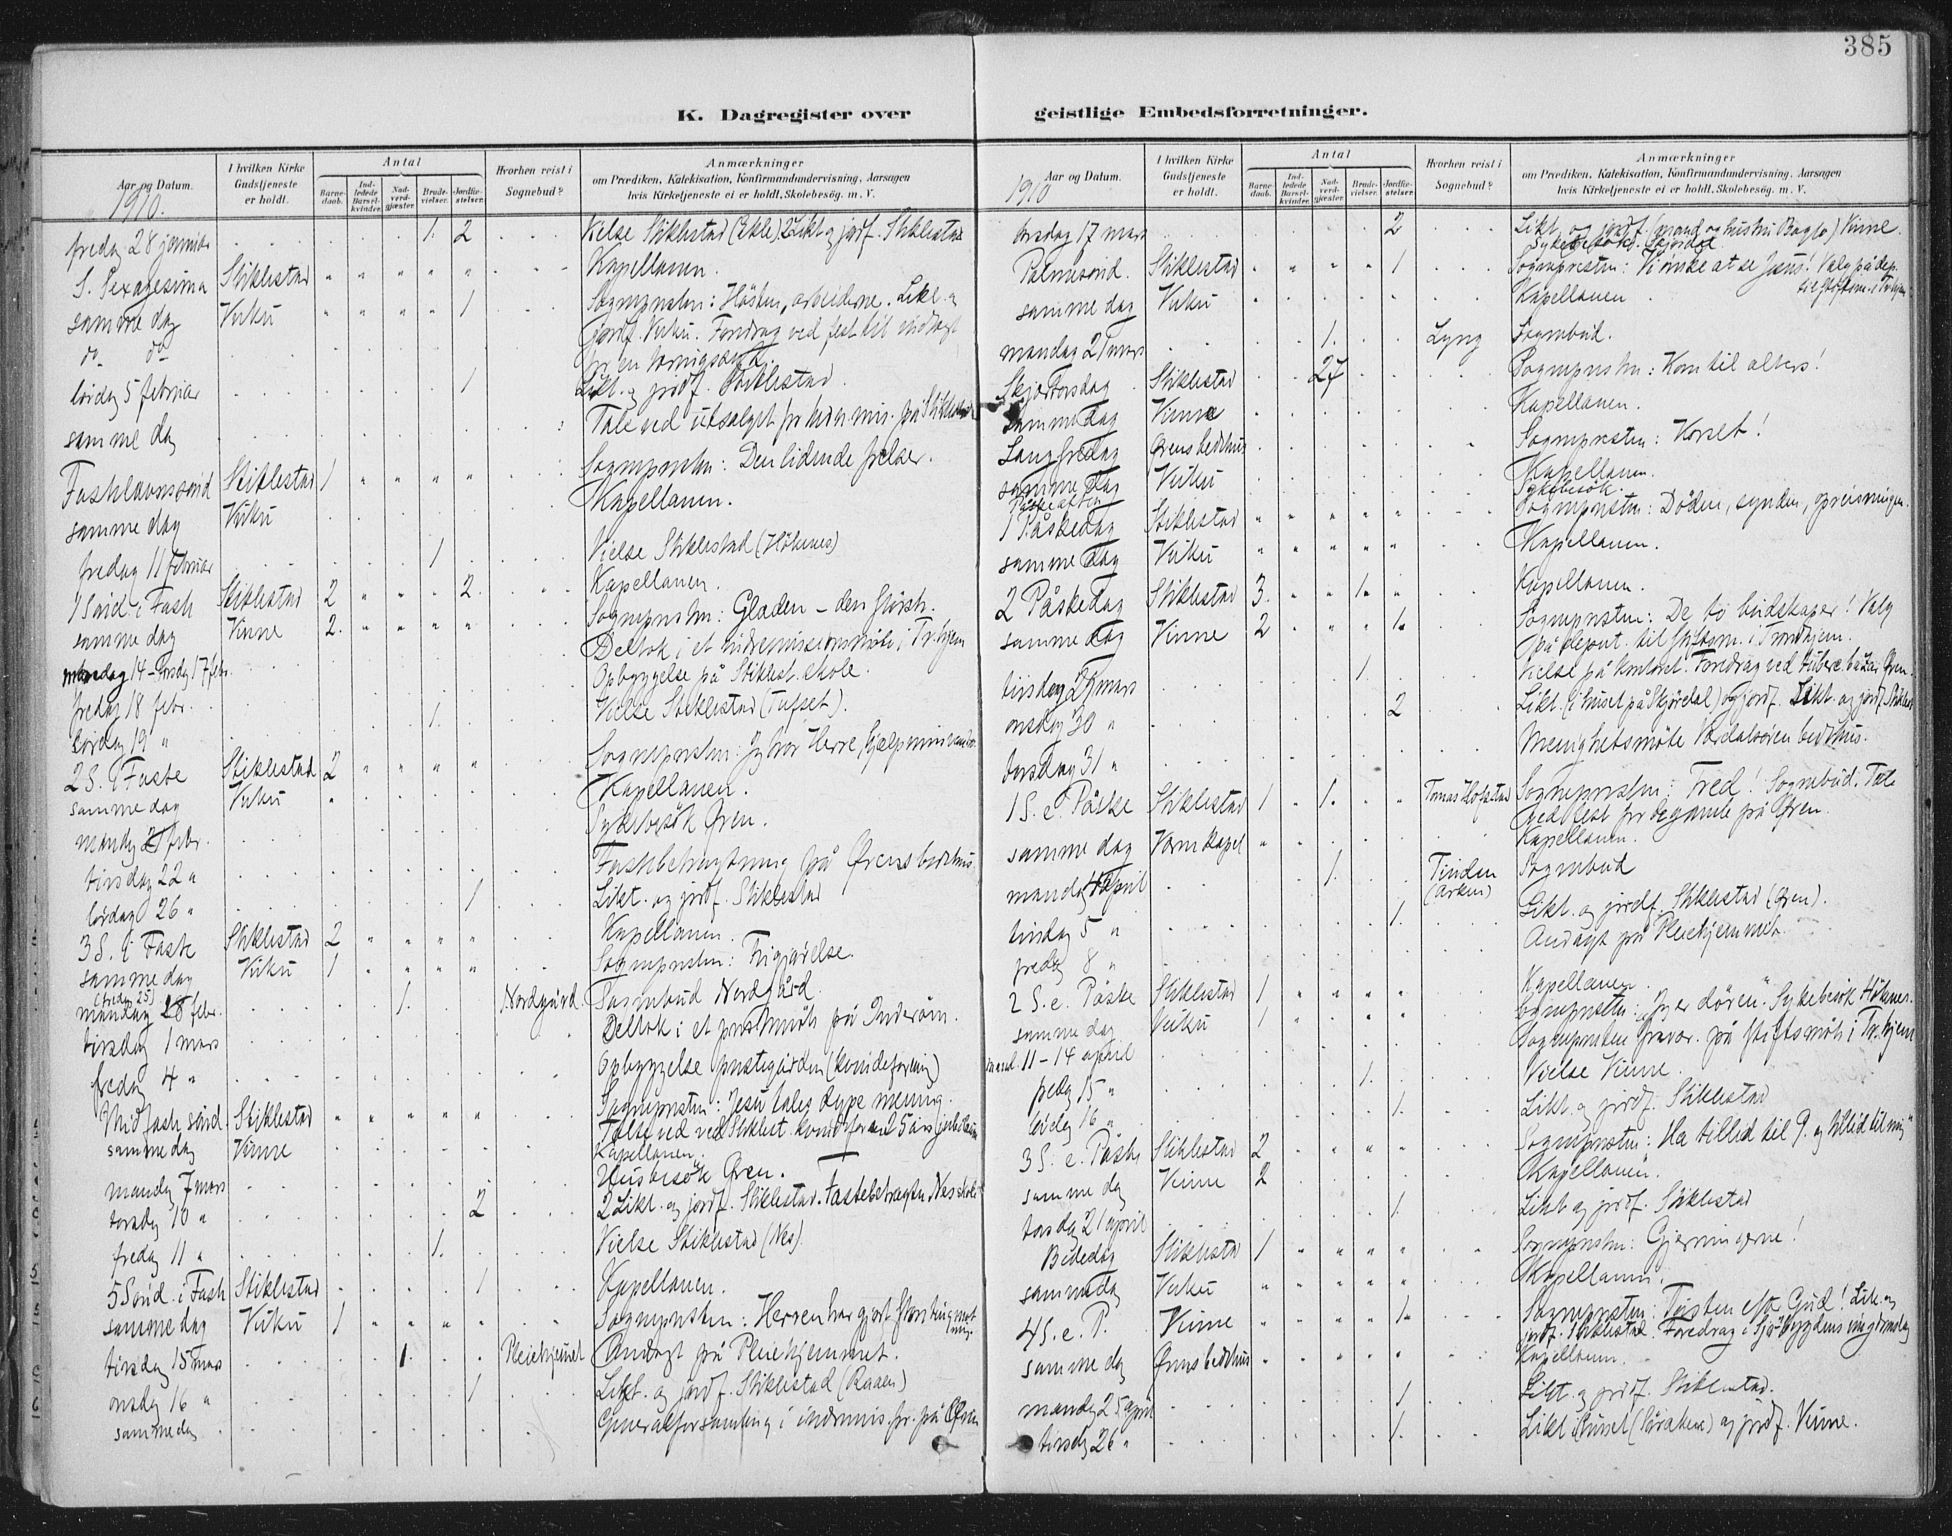 385
K. Dagregister over geistlige Embedsforretninger.
Aar og Datum.
I hvilken Kirke Gudstjeneste er holdt.
Antal
Barne-daab.
Ind-ledede Barsel-kvinder.
Nad-verd-gjæster.
Brude-vielser.
Jordfæ-stelser.
Hvorhen reist i Sognebud?
Anmærkninger
om Prædiken, Katekisation, Konfirmandundervisning, Aarsagen
hvis Kirketjeneste ei er holdt, Skolebesøg. m. V.
1910.
fredag 28 januar 1. 2 Stiklestad
S. Sexagesima Stiklestad Kapellanen.
samme dag Vuku 1 Sogneprsten: Hösten, arbeiderne. Likt. og
do do jordf. Vuku. Foredrag ved fest til indtægt
lördag 5 februar 1 Likt. og jordf. Stiklestad.
samme dag Tale ved utsalget for på Stiklestad
Fastelavnssönd Stiklestad 1 Sogneprsten: Den lidende frelser.
samme dag Vuku Kapellanen.
fredag 11 februar 1 Vielse Stiklestad (Höknes)
1 Sönd i Faste Stiklestad 2 2. Kapellanen.
samme dag Vinne 2. Sogneprsten: Glæden – den störste.
mandag 14 – torsdag 17 febr. Deltok i et indremissionsmöte i Tr.hjem
fredag 18 febr. Opbyggelse på Stiklest. skole.
lördag 19 " 1. Vielse Stiklestad (Tufset).
2 S. i Faste Stiklestad 2 Sogneprsten: Herre, hjælp min vantro.
samme dag Vuku Kapellanen.
mandag 21 febr. Sykebesök Ören.
tirsdag 22 " Fastebetragtning på Örens bedehus.
lördag 26 " 1 Likt. og jordf. Stiklestad
3 S. i Faste Stiklestad 2 Kapellanen.
samme dag Vuku 1 Sogneprsten: Frigjörelse.
(fredag 25)
mandag 28 febr. 1. Nordgård. Sognebud Nordgård
tirsdag 1 mars Deltok i et prestemöte på Inderöin.
fredag 4 " Opbyggelse prestegården (kvindeforening)
Midfaste sönd. Stiklestad Sogneprsten: Jesu tales dype mening.
Tale ved Stiklest. kvindeforen. 25 års jubilæum
samme dag Vinne Kapellanen.
mandag 7 mars Husbesök Ören.
torsdag 10 " 2 2 Likt. og jordf. Stiklestad. Fastebetragtn. Nes skole
fredag 11 " 1. Vielse Stiklestad (Nes)
5 Sönd. i Faste Stiklestad 1 Kapellanen.
samme dag Vuku 1 Sogneprsten: Herren har gjort store ting mot mig.
tirsdag 15 mars 1. Pleiehjemmet Andagt på Pleiehjemmet.
onsdag 16 " 1 Likt. og jordf. Stiklestad (Raaen)
samme dag Generalforsamling i indremis.for. på Ören
Aar og Datum.
I hvilken Kirke Gudstjeneste er holdt.
Antal
Barne-daab.
Ind-ledede Barsel-kvinder.
Nad-verd-gjæster.
Brude-vielser.
Jordfæ-stelser.
Hvorhen reist i Sognebud?
Anmærkninger
om Prædiken, Katekisation, Konfirmandundervisning, Aarsagen
hvis Kirketjeneste ei er holdt, Skolebesøg. m. V.
1910
torsdag 17 mars 2 Likt. og jordf. (mand og hustru Baglo) Vinne.
Sykebesök Skjördal
Palmesönd. Stiklestad 1 Sogneprsten: Vi önske at se Jesus! Valg på dep.
til stiftsm. i Tr.hjem
samme dag Vuku Kapellanen.
mandag 21 mars 1. Lyng Sognebud.
Skjærtorsdag Stiklestad 27 Sogneprsten: Kom til alters!
samme dag Vinne Kapellanen.
Langfredag Örens bedehus Sogneprsten: Korset!
samme dag Vuku Kapellanen.
Påskeaften Sykebesök.
1 Påskedag Stiklestad Sogneprsten: Döden, synden, opreisningen.
samme dag Vuku Kapellanen.
2 Påskedag Stiklestad 3. 1. Kapellanen.
samme dag Vinne 2 1. Sogneprsten: De to budskaper! Valg
på deput. til stiftsm. i Trondhjem.
tirsdag 29 mars 1. Vielse på kontoret. Foredrag ved tuberc.bazar Ören.
onsdag 30 " 2 Likt. (i huset på Skjördal) og jordf. Likt. og jordf. Stiklest
torsdag 31 " Menighetsmöte Værdalsören bedehus.
1 S. e. Påske Stiklestad 1 1. Tomas Hofstad Sogneprsten: Fred! Sognebud. Tale
ved fest for de gamle på Ören.
samme dag Værn kapel Kapellanen.
mandag 4 april 1. Tinden Sognebud
tirsdag 5 " 1. Likt. og jordf. Stiklestad (Ören).
fredag 8 " Andagt på Pleiehjemmet.
2 S. e. Påske Stiklestad 1 Kapellanen.
samme dag Vuku 1 Sogneprsten: "Jeg er dören". Sykebesök Höknes.
mand. 11–14 april Sogneprsten fravær. på stiftsmöte i Tr.hjem
fredag 15 " 1. Vielse Vinne.
lördag 16 " 1. Likt. og jordf. Stiklestad
3 S. e. Påske Stiklestad 2 Sogneprsten: Ha tillid til G. og tillid til mig"
samme dag Vinne 2 Kapellanen.
torsdag 21 april 1. Likt og jordf. Stiklestad
Bededag Stiklestad 1 Sogneprsten: Gjerningerne!
samme dag Vuku Kapellanen.
4 S. e. P. Vinne 1. Sogneprsten: Törsten efter Gud! Likt. og
jordf. Stiklestad. Foredrag i Sjöbygdens ungdomslag
samme dag Örens bedehus Kapellanen.
mandag 25 april 1 Likt. og jordf. Stiklestad.
tirsdag 26 " 1. Likt i huset og jordf. Vinne.